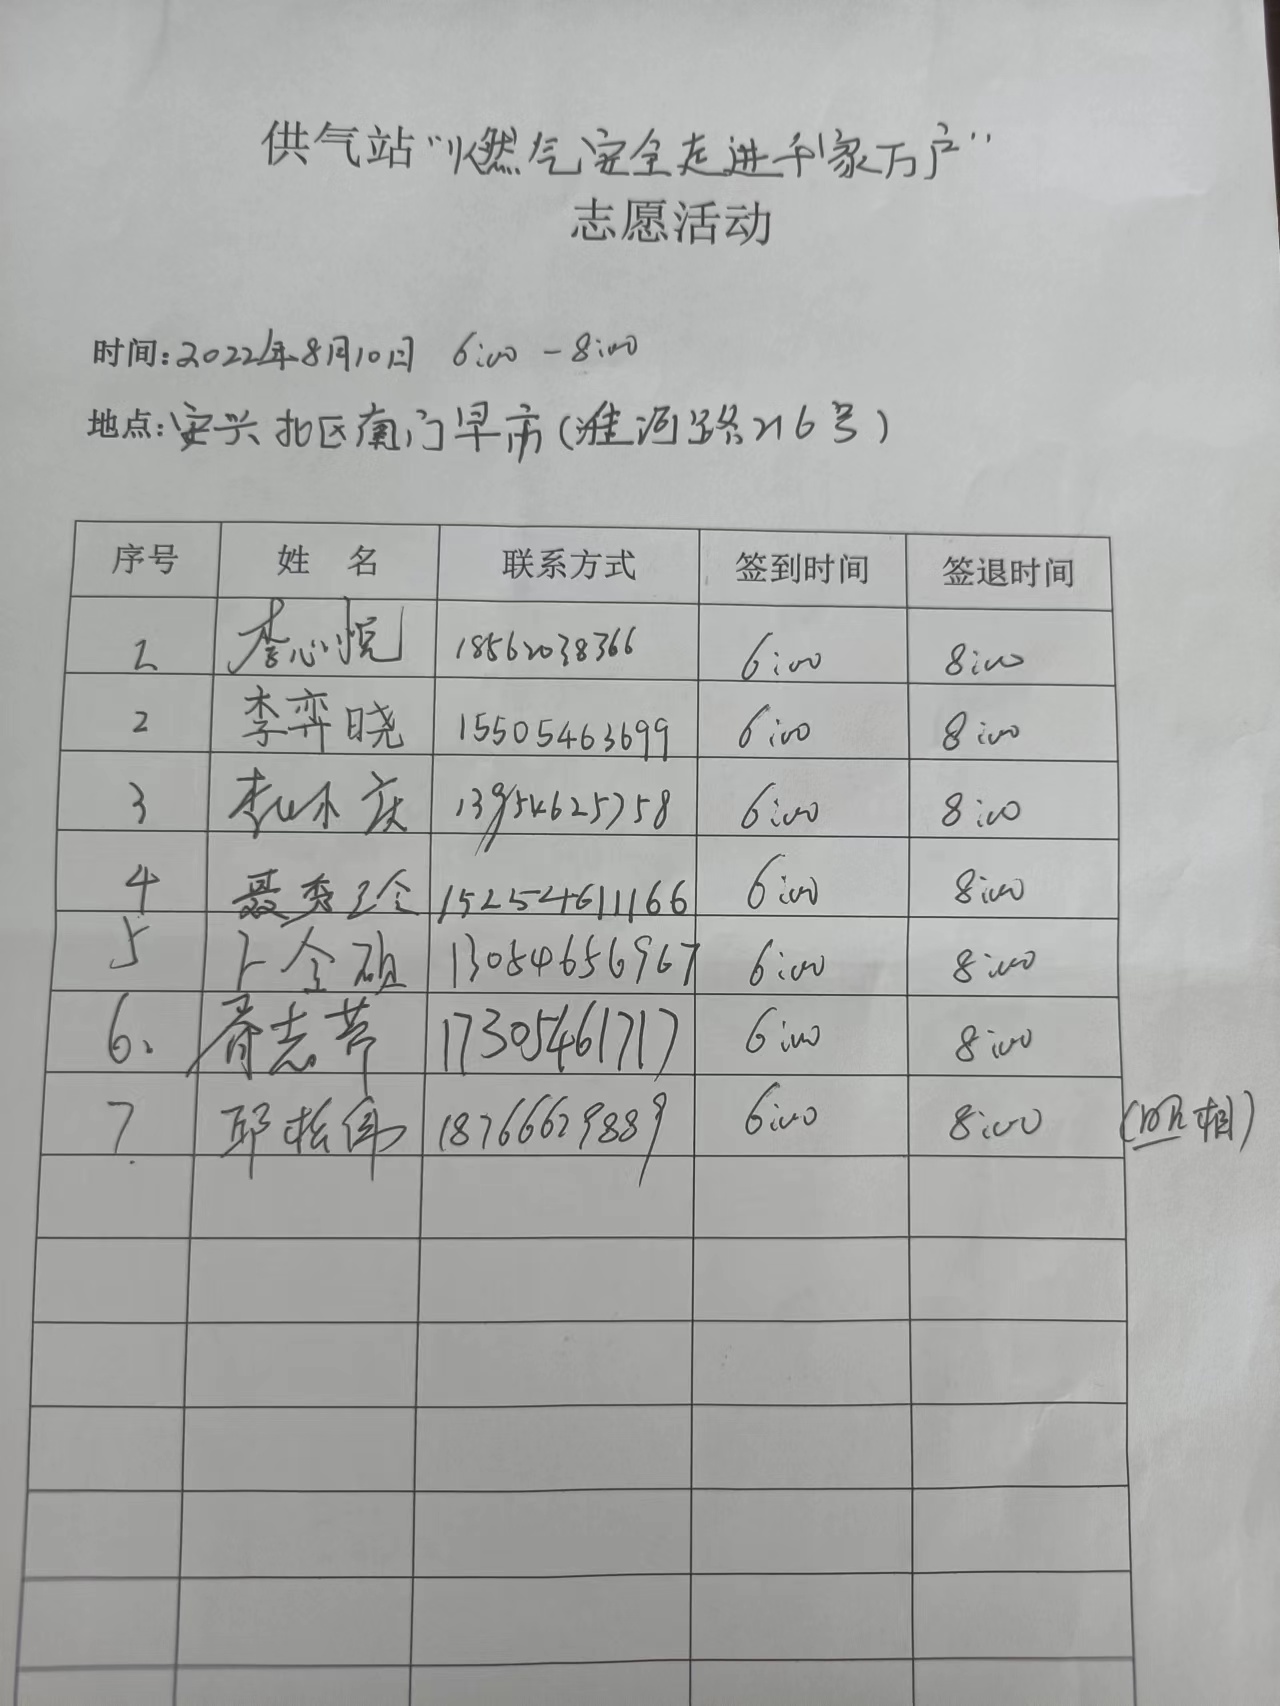 供气站“燃气安全走进千家万户”
志愿活动
时间:2022年8月10日 6:00-8:00
地点:安兴北区南门早市(淮河路216号)
序号 姓名 联系方式 签到时间 签退时间
1 李心悦 18562038366 6:00 8:00
2 李弈晓 15505463699 6:00 8:00
3 13954625758 6:00 8:00
4 聂秀玲 15254611166 6:00 8:00
5 卜全硕 13054656967 6:00 8:00
6. 17305461717 6:00 8:00
7 邱松伟 18766629889 6:00 8:00 (照相)